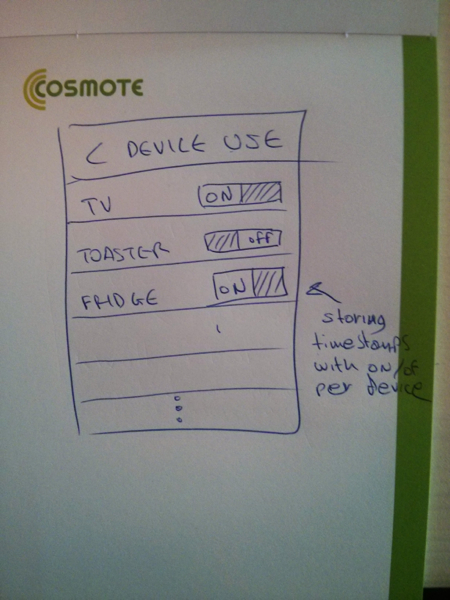 COSMOTE
< DEVICE USE
TV ON
TOASTER OFF
FRIDGE ON
storing
timestamps
with on/of
per device